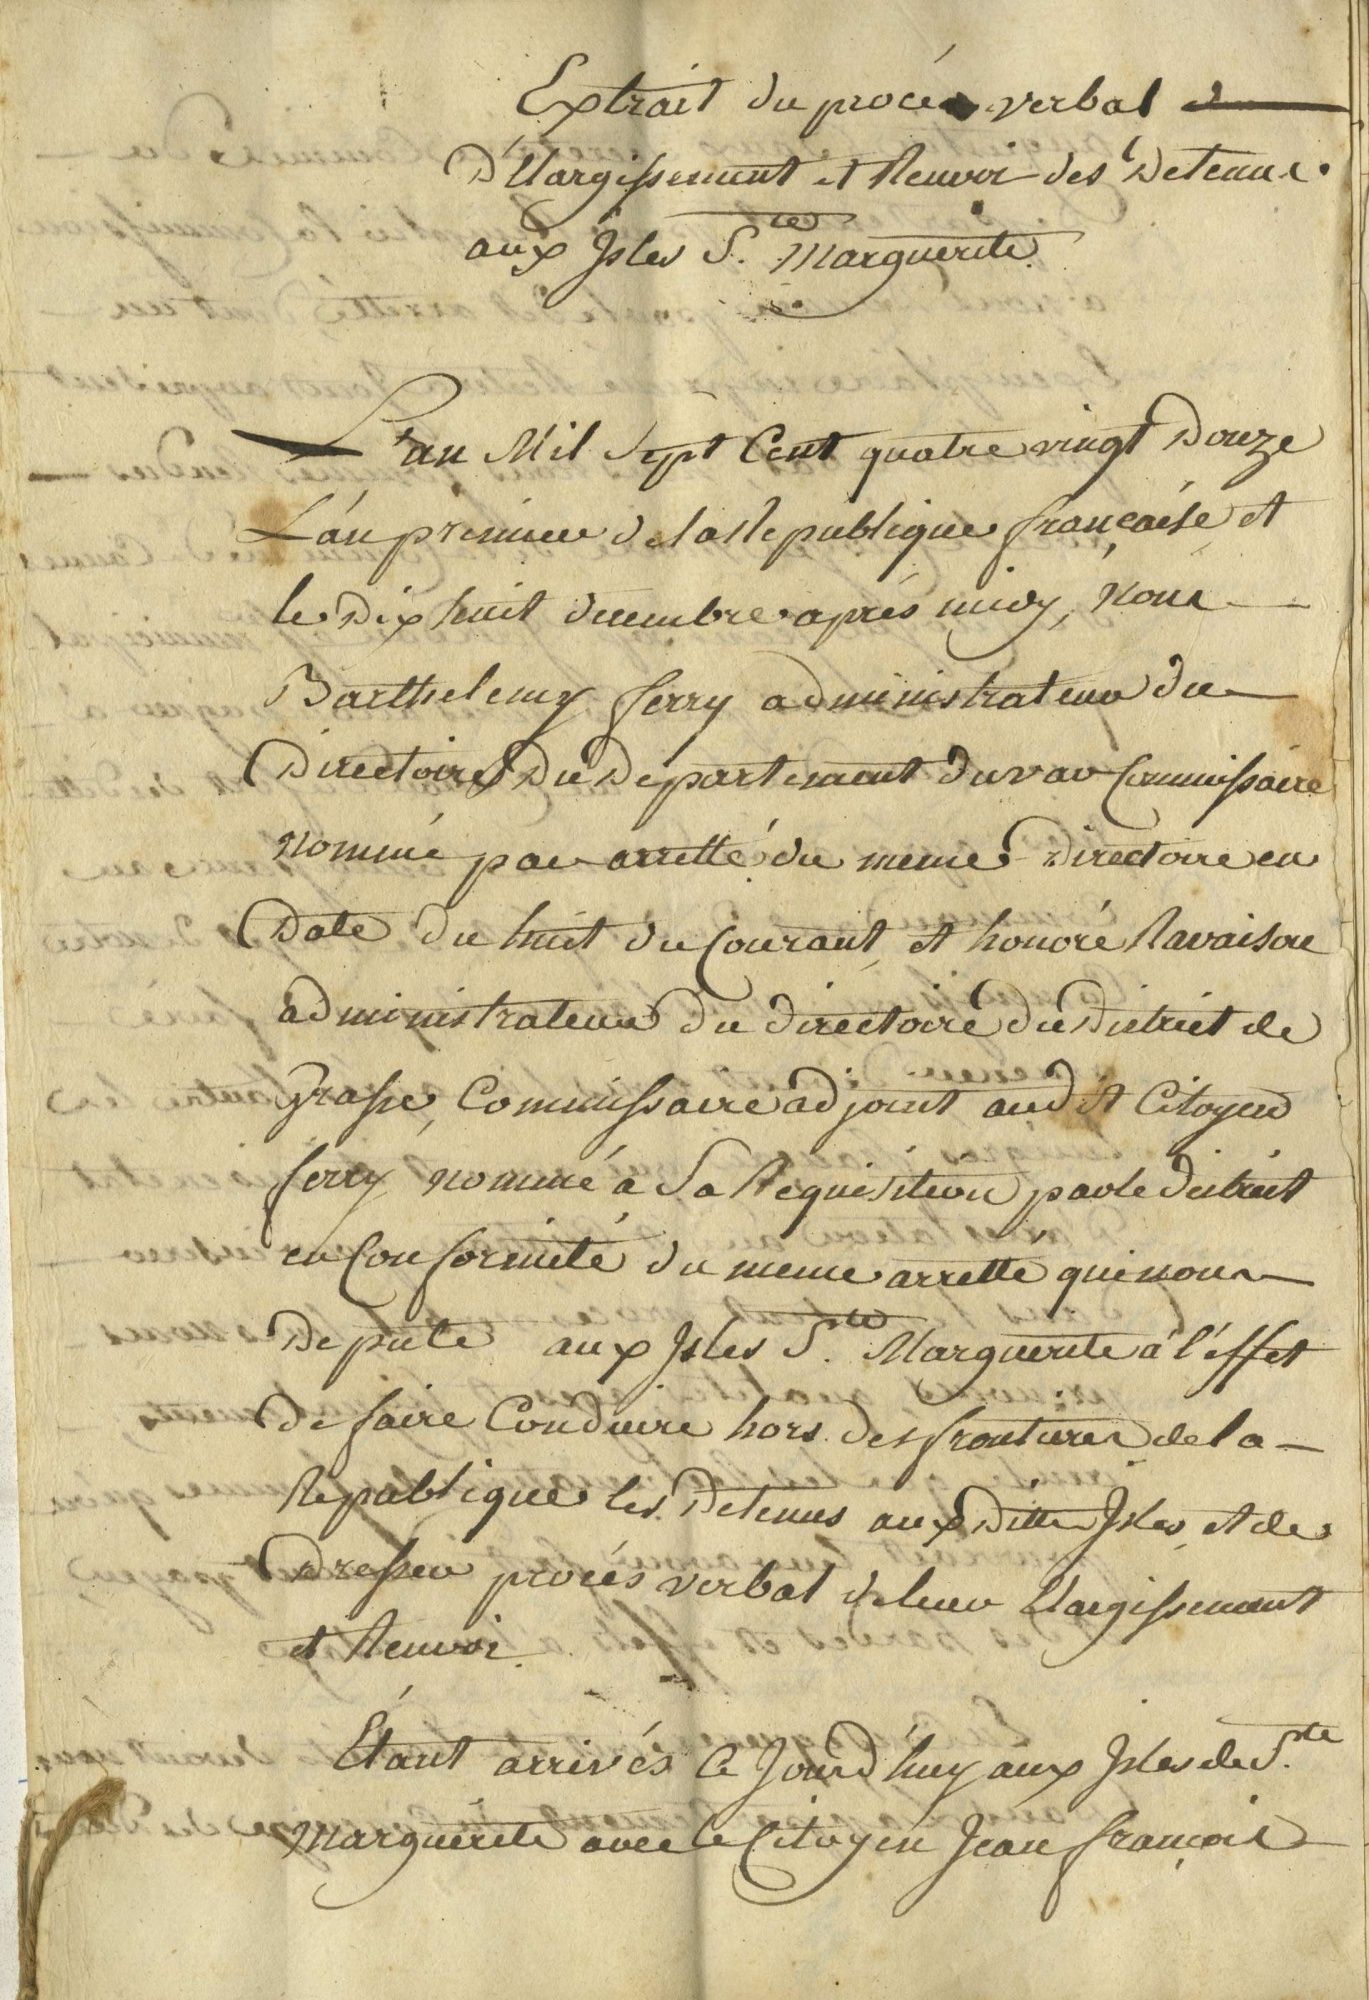 Extrait du procés verbal
D'Elargissement et Renvoi des Detenus
aux Isles Ste. Marguerite.
L'an Mil Sept Cent quatre vingt Douze
L'an premier de la Republique françaíse et
le Dix huit decembre après midy, nous
Barthelemy ferry administrateur du
Directoire Du Departement du var Commissaire
nommé par arretté du meme Directoire en
Date du huit du Courant, et honoré Ravaisou
administrateur du directoire du District de
Grasse, Commissaire adjoint audit Citoyen
ferry, nommé à Sa Requisition par le district
en Conformité du meme arretté qui nous
Depute aux Isles Ste. Marguerite à l'effet
de faire Conduire hors des frontieres de la
Republique les Detenus aux Dittes Isles, et de
Dresser procés verbal de leur Elargissement
et Renvoi.
Étant arrivés Ce Jourd'huy aux Isles de Ste.
Marguerite avec le Citoyen Jean françois